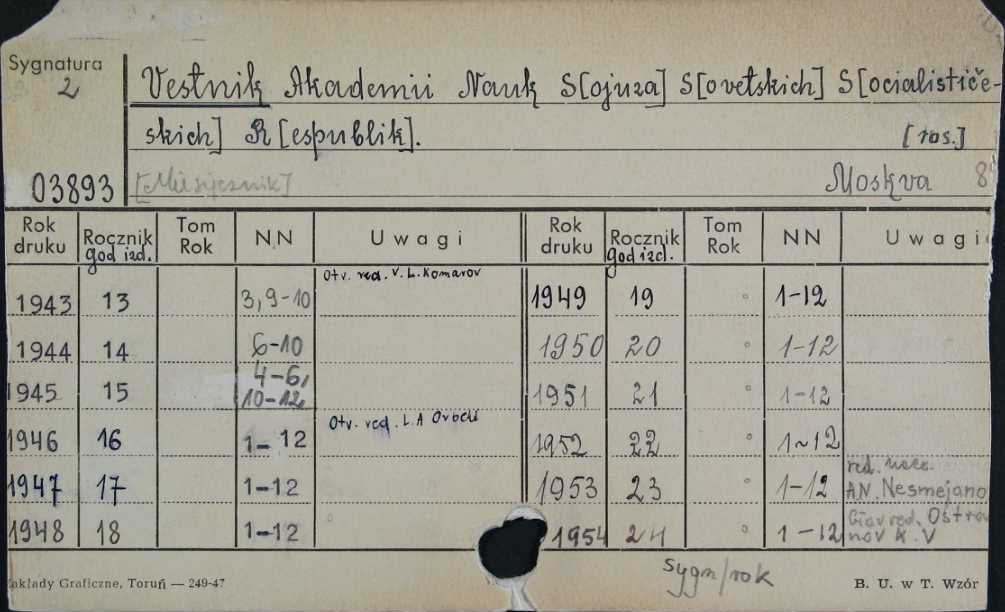 Sygnatura
2
Vestnik Akademii Nauk S[ojuza] S[ovetskich] S[ocialističe-
skich] R[espublik]. [ros.]
03893 [Miesięcznik] Moskva
Rok druku Rocznik god izd. Tom Rok NN Uwagi Rok druku Rocznik god izd. Tom Rok NN Uwagi
Otv. red. V. L. Komarov
1943 13 3, 9-10 1949 19 1-12
1944 14 6-10 1950 20 1-12
1945 15 4-6, 10-12 1951 21 1-12
Otv. red. L.A Orbeli
1946 16 1-12 1952 22 1-12
1947 17 1-12 1953 23 1-12 red. AN. Nesmejano
1948 18 1-12 1954 24 1-12 Glav red. Ostro nov K. V
Sygn/rok
akłady Graficzne, Toruń — 249-47 B. U. w T. Wzór